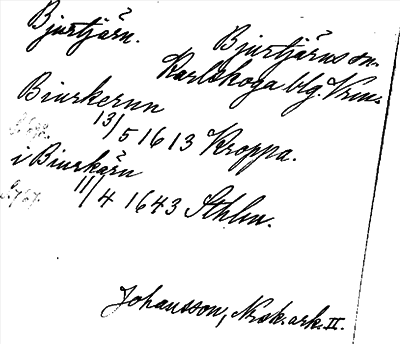 Bjurtjärn.
Bjurtjärns sn.
Karlskoga blg. Vrml.
Biurkernn
13/5 1613 Kroppa.
i Biurkärn
11/4 1643 Sthlm.
Johansson, Kroksark. II.